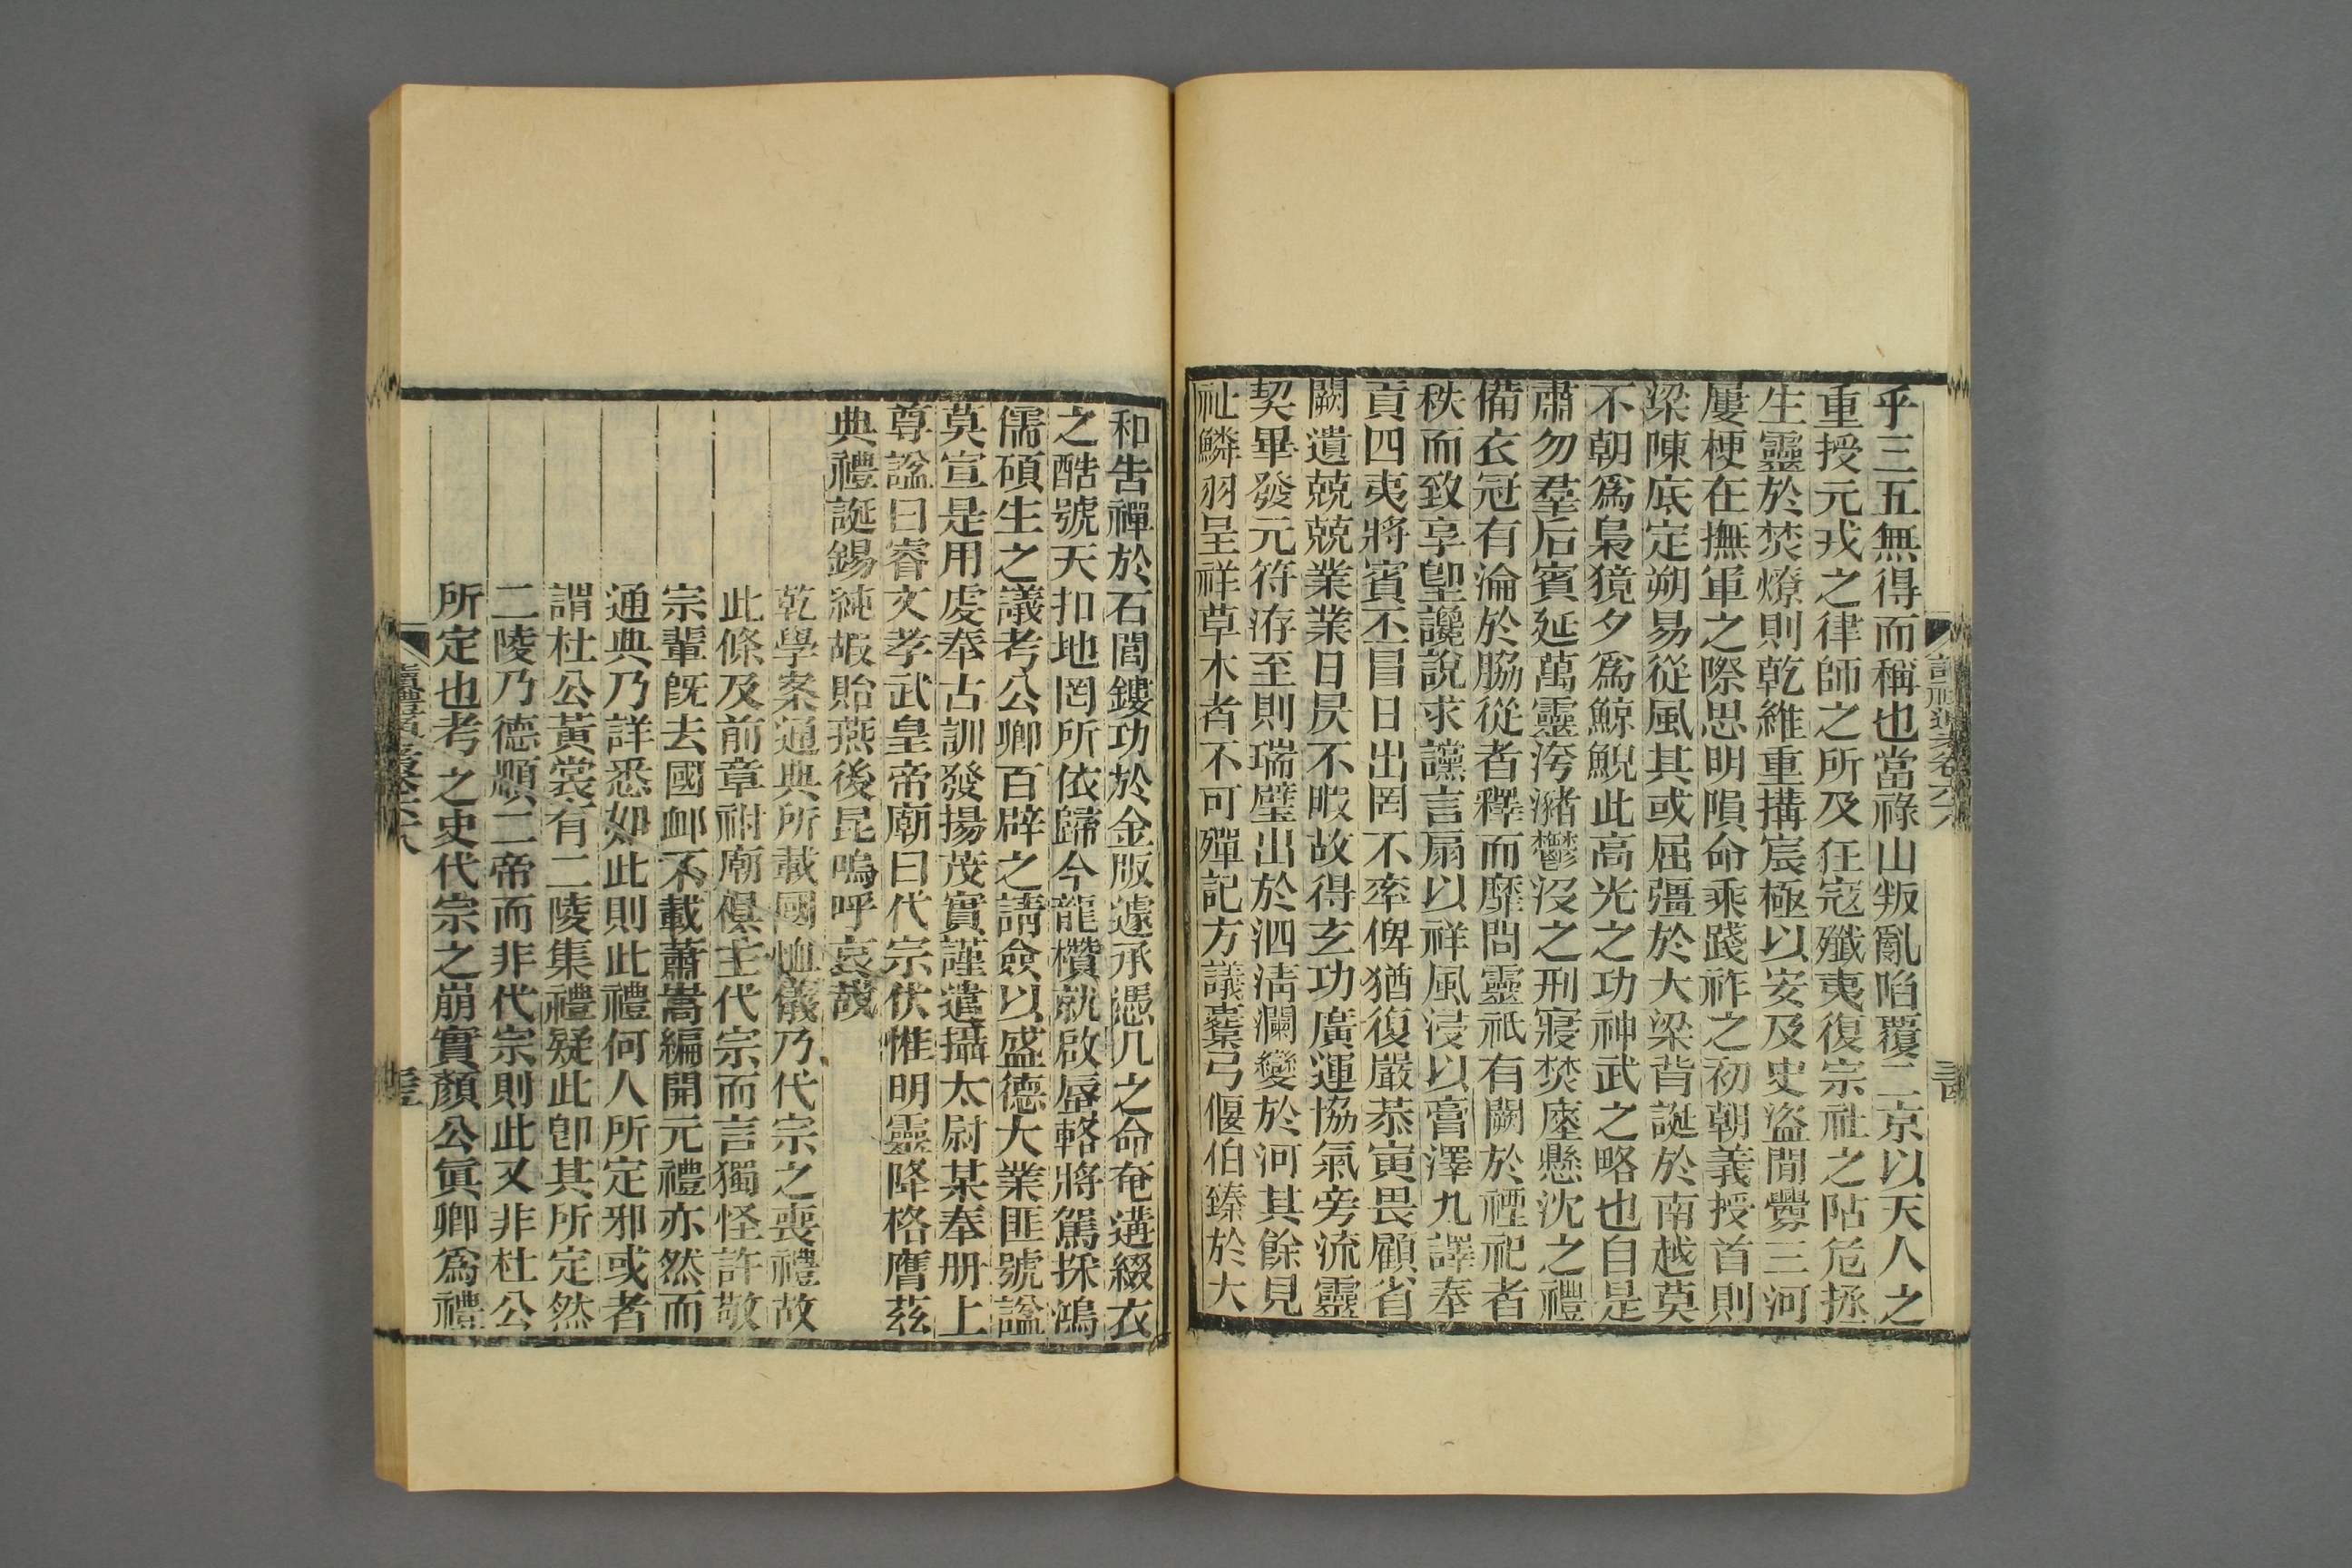 乎三五無得而稱也當祿山叛亂陷覆二京以天人之
重授元戎之律師之所及狂寇殲夷復宗社之阽危拯
生靈於焚燎則乾維重搆宸極以安及史盜閒釁三河
屢梗在撫軍之際思明隕命乘踐祚之初朝義授首則
梁陳底定朔易從風其或屈彊於大梁背誕於南越莫
不朝爲梟獍夕爲鯨鯢此高光之功神武之略也自是
肅勿羣后賓延萬靈洿瀦鬱沒之刑寢焚座懸沈之禮
備衣冠有淪於脇從者釋而靡問靈祇有闕於禋祀者
秩而致享塱讒說求讜言扇以祥風浸以膏澤九譯奉
貢四夷將賓丕冒日出罔不率俾猶復嚴恭寅畏顧省
闕遺兢兢業業日昃不暇故得玄功廣運協氣旁流靈
契畢發元符洊至則瑞璧出於泗淸瀾變於河其餘見
祉鱗羽呈祥草木者不可殫記方議櫜弓偃伯臻於大
和告禪於石閭鏤功於金版遽承憑几之命奄遘綴衣
之酷號天扣地罔所依歸今龍欑就啟蜃輅將駕採鴻
儒碩生之議考公卿百辟之請僉以盛德大業匪號諡
莫宣是用虔奉古訓發揚茂實謹遣攝太尉某奉册上
尊諡曰睿文孝武皇帝廟曰代宗伏惟明靈降格膺茲
典禮誕錫純嘏貽燕後昆嗚呼哀哉
乾學案通典所載國恤儀乃代宗之喪禮故
此條及前章祔廟俱主代宗而言獨怪許敬
宗輩旣去國邮不載蕭嵩編開元禮亦然而
通典乃詳悉如此則此禮何人所定邪或者
謂杜公黃裳有二陵集禮疑此卽其所定然
二陵乃德順二帝而非代宗則此又非杜公
所定也考之史代宗之崩實顏公眞卿爲禮